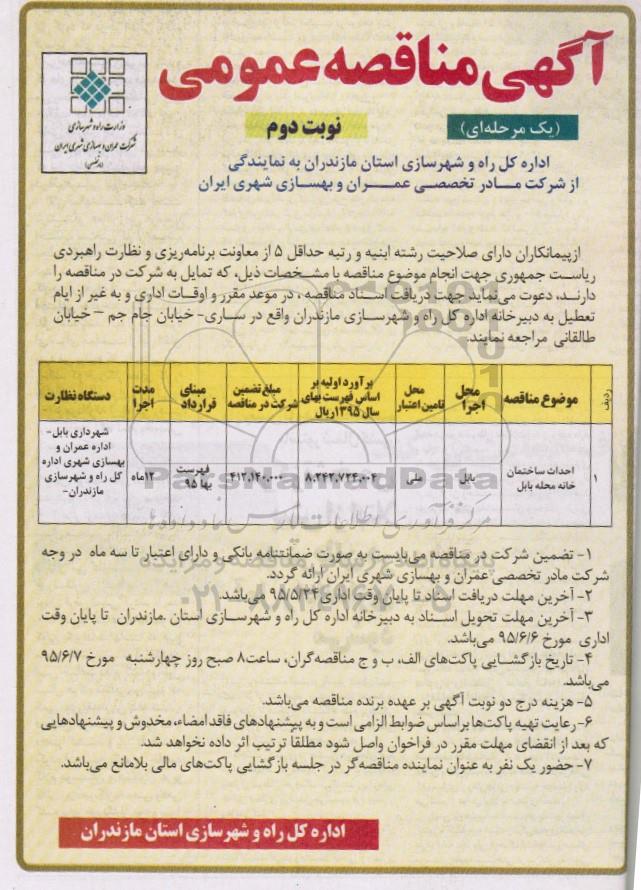 آگهی مناقصه عمومی
وزارت راه و شهرسازی
شرکت عمران و بهسازی شهری ایران
(مادر تخصصی)
(یک مرحله‌ای)
نوبت دوم
اداره کل راه و شهرسازی استان مازندران به نمایندگی
از شرکت مـادر تخصصـی عمـران و بهسازی شهری ایران
ازپیمانکاران دارای صلاحیت رشته ابنیه و رتبه حداقل ۵ از معاونت برنامه‌ریزی و نظارت راهبردی
ریاست جمهوری جهت انجام موضوع مناقصه با مشخصات ذیل، که تمایل به شرکت در مناقصه را
دارند، دعوت می‌نماید جهت دریافت اسناد مناقصه ، در موعد مقرر و اوقات اداری و به غیر از ایام
تعطیل به دبیرخانه اداره کل راه و شهرسازی مازندران واقع در ساری- خیابان جام جم – خیابان
طالقانی مراجعه نمایند.
ردیف | موضوع مناقصه | محل اجرا | محل تامین اعتبار | برآورد اولیه بر اساس فهرست بهای سال ۱۳۹۵ریال | مبلغ تضمین شرکت در مناقصه | مبنای قرارداد | مدت اجرا | دستگاه نظارت
۱ | احداث ساختمان خانه محله بابل | بابل | ملی | ۸،۲۴۲،۷۲۴،۰۰۴ | ۴۱۲،۱۴۰،۰۰۰ | فهرست بها ۹۵ | ۱۲ماه | شهرداری بابل- اداره عمران و بهسازی شهری اداره کل راه و شهرسازی مازندران-
ParsNamadData
۱- تضمین شرکت در مناقصه می‌بایست به صورت ضمانتنامه بانکی و دارای اعتبار تا سه ماه در وجه
شرکت مادر تخصصی عمران و بهسازی شهری ایران ارائه گردد.
۲- آخرین مهلت دریافت اسناد تا پایان وقت اداری ۹۵/۵/۲۴ می‌باشد.
۳- آخرین مهلت تحویل اسناد به دبیرخانه اداره کل راه و شهرسازی استان .مازندران تا پایان وقت
اداری مورخ ۹۵/۶/۶ می‌باشد.
۴- تاریخ بازگشایی پاکت‌های الف، ب و ج مناقصه‌گران، ساعت۸ صبح روز چهارشنبه مورخ ۹۵/۶/۷
می‌باشد.
۵- هزینه درج دو نوبت آگهی بر عهده برنده مناقصه می‌باشد.
۶- رعایت تهیه پاکت‌ها براساس ضوابط الزامی است و به پیشنهادهای فاقد امضاء، مخدوش و پیشنهادهایی
که بعد از انقضای مهلت مقرر در فراخوان واصل شود مطلقاً ترتیب اثر داده نخواهد شد.
۷- حضور یک نفر به عنوان نماینده مناقصه‌گر در جلسه بازگشایی پاکت‌های مالی بلامانع می‌باشد.
اداره کل راه و شهرسازی استان مازندران